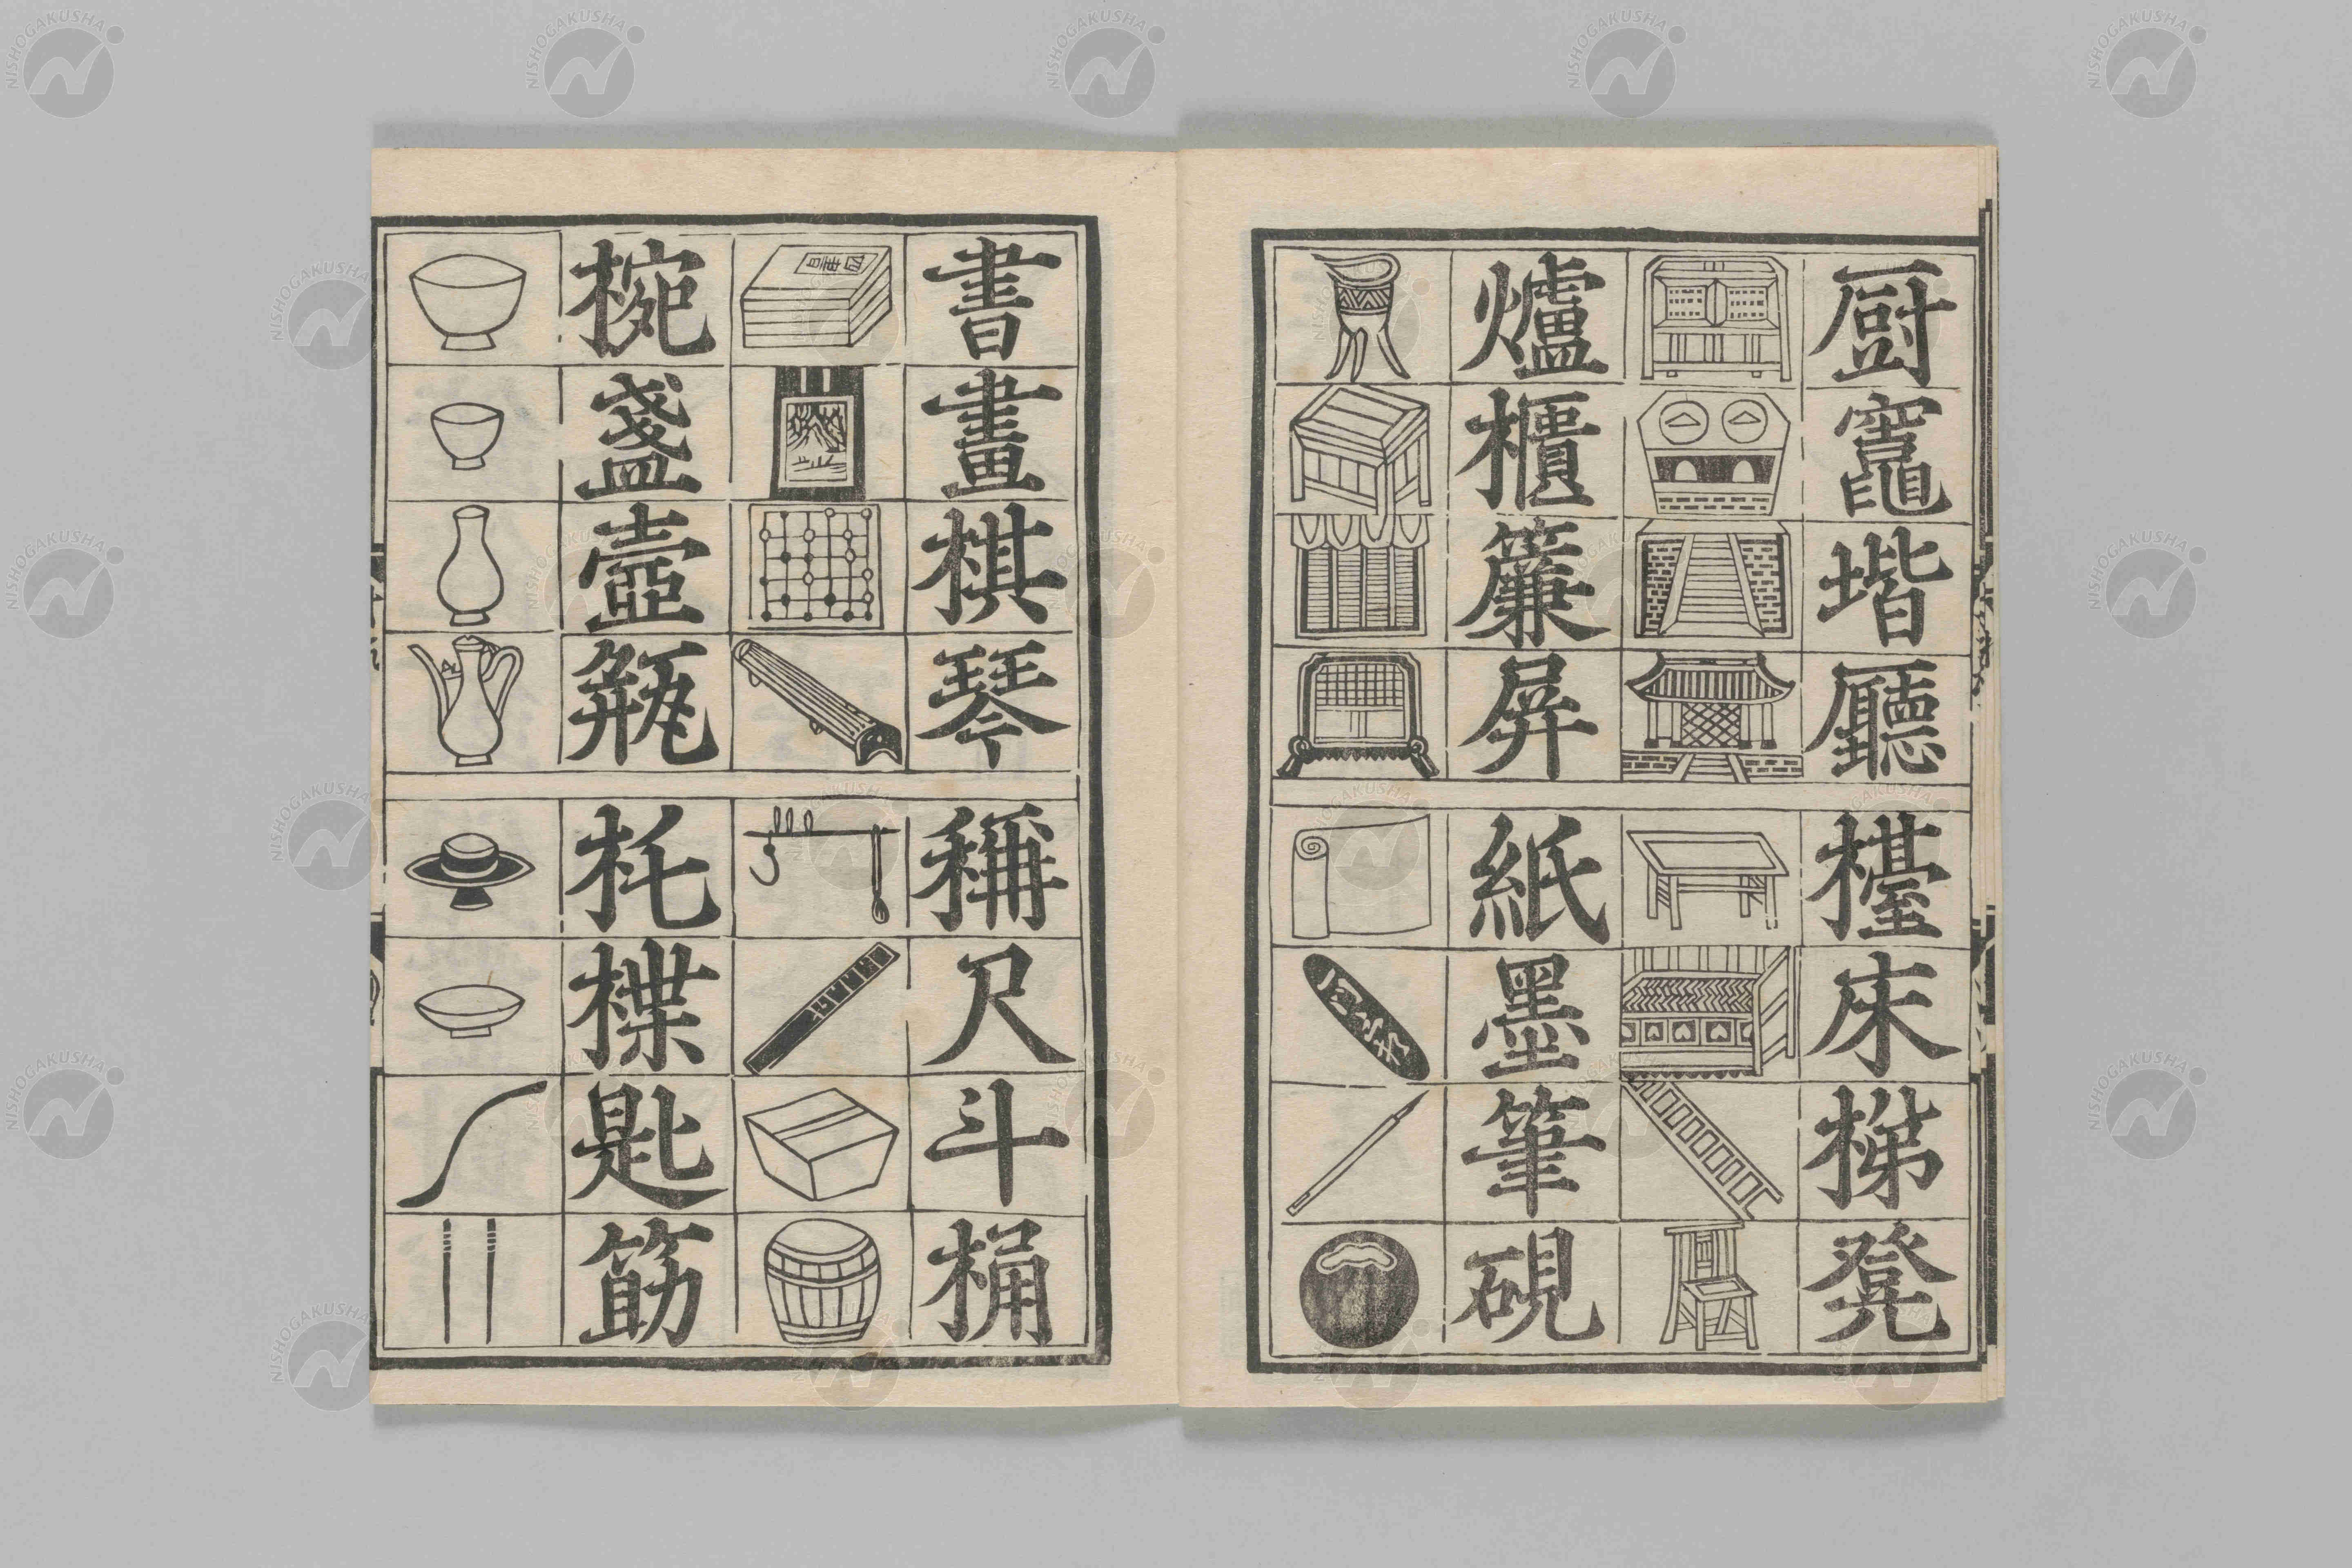 厨竈堦廳
檯床梯凳
爐櫃簾屏
紙墨筆硯
書畫棋琴
稱尺斗桶
四書
椀盞壺瓶
杔楪匙筯
NISHOGAKUSHA